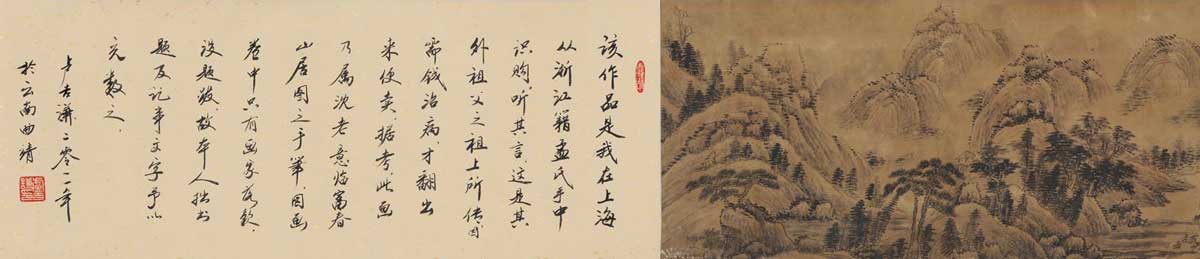 该作品是我在上海
从浙江籍孟氏手中
识购,听其言,这是其
外祖父之祖上所传,因
需钱治病,才翻出
来便卖,据考,此画
乃属沈老意临富春
山居图之手笔,因画
卷中只有画家名款,
没题跋,故本人拙书
题及记事文字予以
充数之,
二零一一年
於云南曲靖